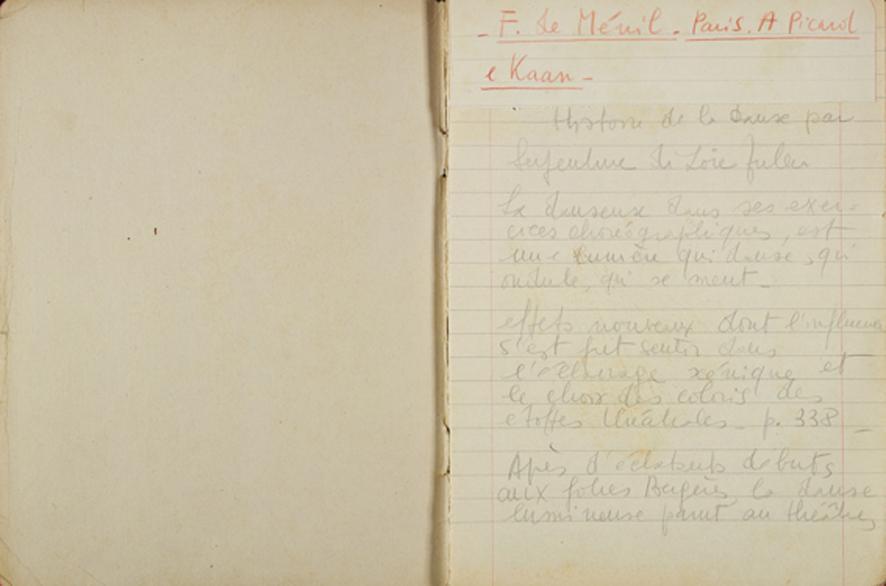 - F. de Ménil - Paris. A Picard
e Kaan -
Histoire de la Danse par
Serpentine de Loïe Fuller
La danseuse dans ses exer-
cices chorégraphiques, est
une lumière qui danse, qui
ondule, qui se meut -
effets nouveaux dont l'influence
s'est fait sentir dans
l'éclairage scénique et
le choix des coloris des
étoffes théâtrales - p. 338 -
Après d'éclatants débuts
aux folies Bergère, la danse
lumineuse parut au théâtre,